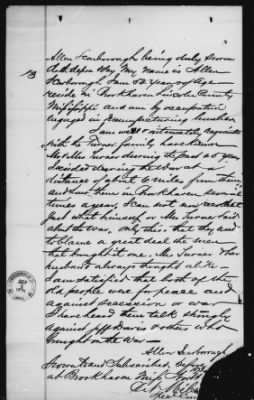 Allen Scarborough being duly sworn
doth depose & say My name is Allen
Scarborough I am 52 years of Age
reside in Brookhaven Lincoln County
Mississippi and am by occupation
engaged in manufacturing lumber
I am well & intimately acquainted
with the Turner family have known
Mr & Mrs Turner during the past 25 years
I resided during the war at
distance of about 12 miles from them
and saw them in Brookhaven several
times a year, I can not now recollect
just what himself or Mrs Turner said
about the war, only this. that they used
to blame a great deal the men
that brought it on. Mr. Turner & her
husband always thought alike
I am satisfied that both of the
old people was for peace and
against secession or war
I have heard them talk strongly
against Jeff Davis & others who
brought on the war
Allen Scarborough
Sworn to and Subscribed before
at Brookhaven Miss